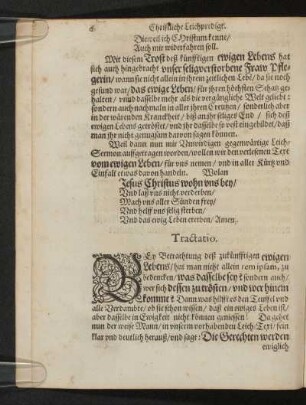 6 Christliche Leichpredigt.
Dieweil ich Christum kenne/
Auch mir widerfahren soll.
Mit diesem Trost deß künfftigen ewigen Lebens hat
sich auch hingebracht unser seligverstorbene Fraw Pfle-
gerin/ wann sie nicht allein in ihrem zeitlichen Lebē/ da sie noch
gesund war/ das ewige Leben/ für ihren höchsten Schatz ge-
halten/ vnnd dasselbe mehr als die vorgängliche Welt geliebt:
sondern auch nachmaln in aller ihrem Creutz/ sonderlich aber
in der wärenden Kranckheit/ biß an ihr seliges End/ sich deß
ewigen Lebens getröstet/ vnd ihr dasselbe so vest eingebildet/ daß
man ihr nicht genugsam darvon sagen können.
Weil dann nun mir Unwürdigen gegenwärtige Leich-
Sermon auffgetragen worden/ wollen wir den verlesenen Text
vom ewigen Leben/ für uns nemen/ vnd in aller Kürtz vnd
Einfalt etwas davon handeln. Wolan
Jesus Christus wohn uns bey/
Vnd laß vns nicht verderben/
Mach vns aller Sünden frey/
Vnd helff vns selig sterben/
Vnd das ewig Leben ererben/ Amen.
Tractatio.
BEy Betrachtung deß zukünfftigen ewigen
Lebens/ hat man nicht allein rem ipsam, zu
bedencken/ was dasselbe sey: sondern auch/
wer sich dessen zu trösten/ und wer hinein
komme? Dann was hilffts den Teuffel vnd
alle Verdambte/ ob sie schon wissen/ daß ein ewiges Leben ist/
aber dasselbe in Ewigkeit nicht können geniessen? Da gehet
nun der weise Mann/ in unserm vorhabenden Leich-Text/ fein
klar vnd deutlich herauß/ vnd sagt: Die Gerechten werden
ewiglich